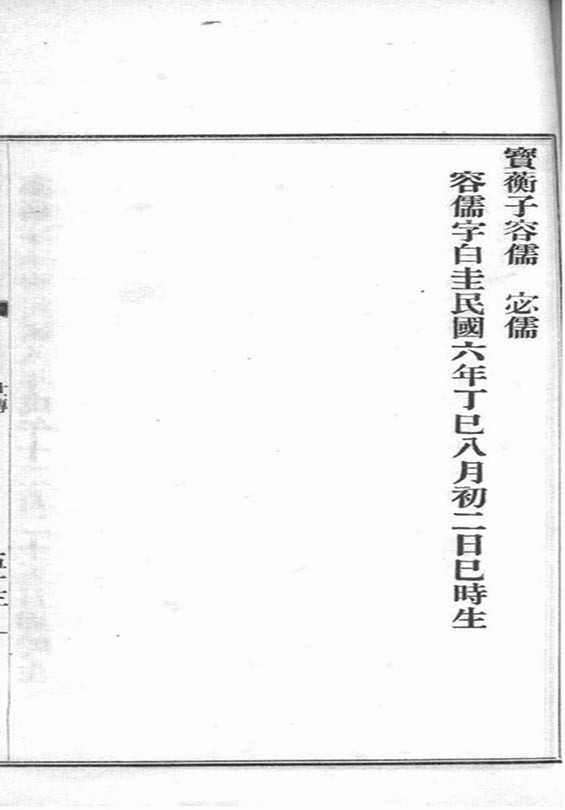 寶蘅子容儒　宓儒
容儒字白圭民國六年丁巳八月初二日巳時生
世傳